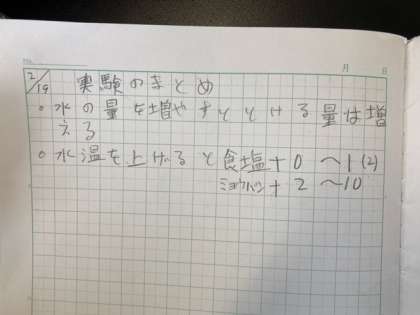 No.
月 日
2/19 実験のまとめ
○水の量を増やすととける量は増
える
○水温を上げると食塩+0〜1(2)
ミョウバン+2〜10